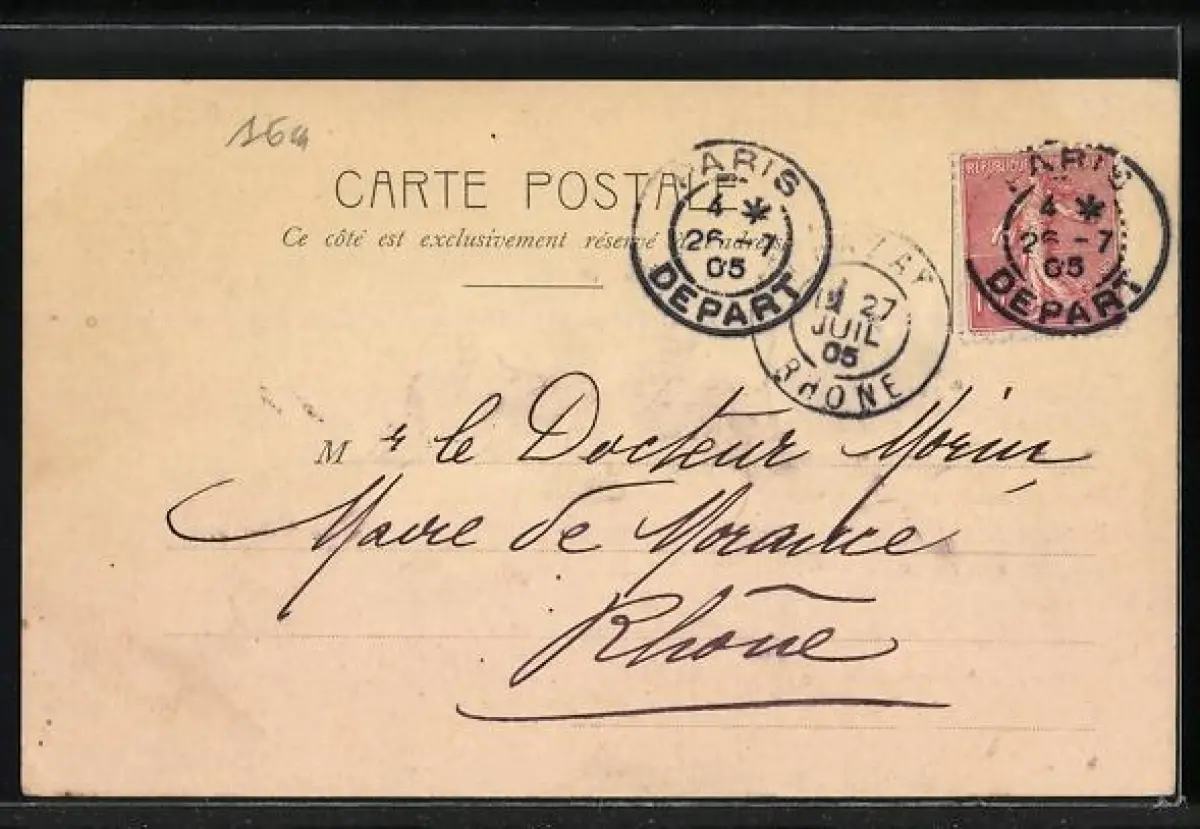 16
CARTE POSTALE
Ce côté est exclusivement réservé à l'adresse
PARIS
4 *
26 - 7
05
DEPART
RÉPUBLIQUE
PARIS
4 *
26 - 7
05
DEPART
27
JUIL
05
RHONE
Mr le Docteur Morin
Maire de Morance
Rhône